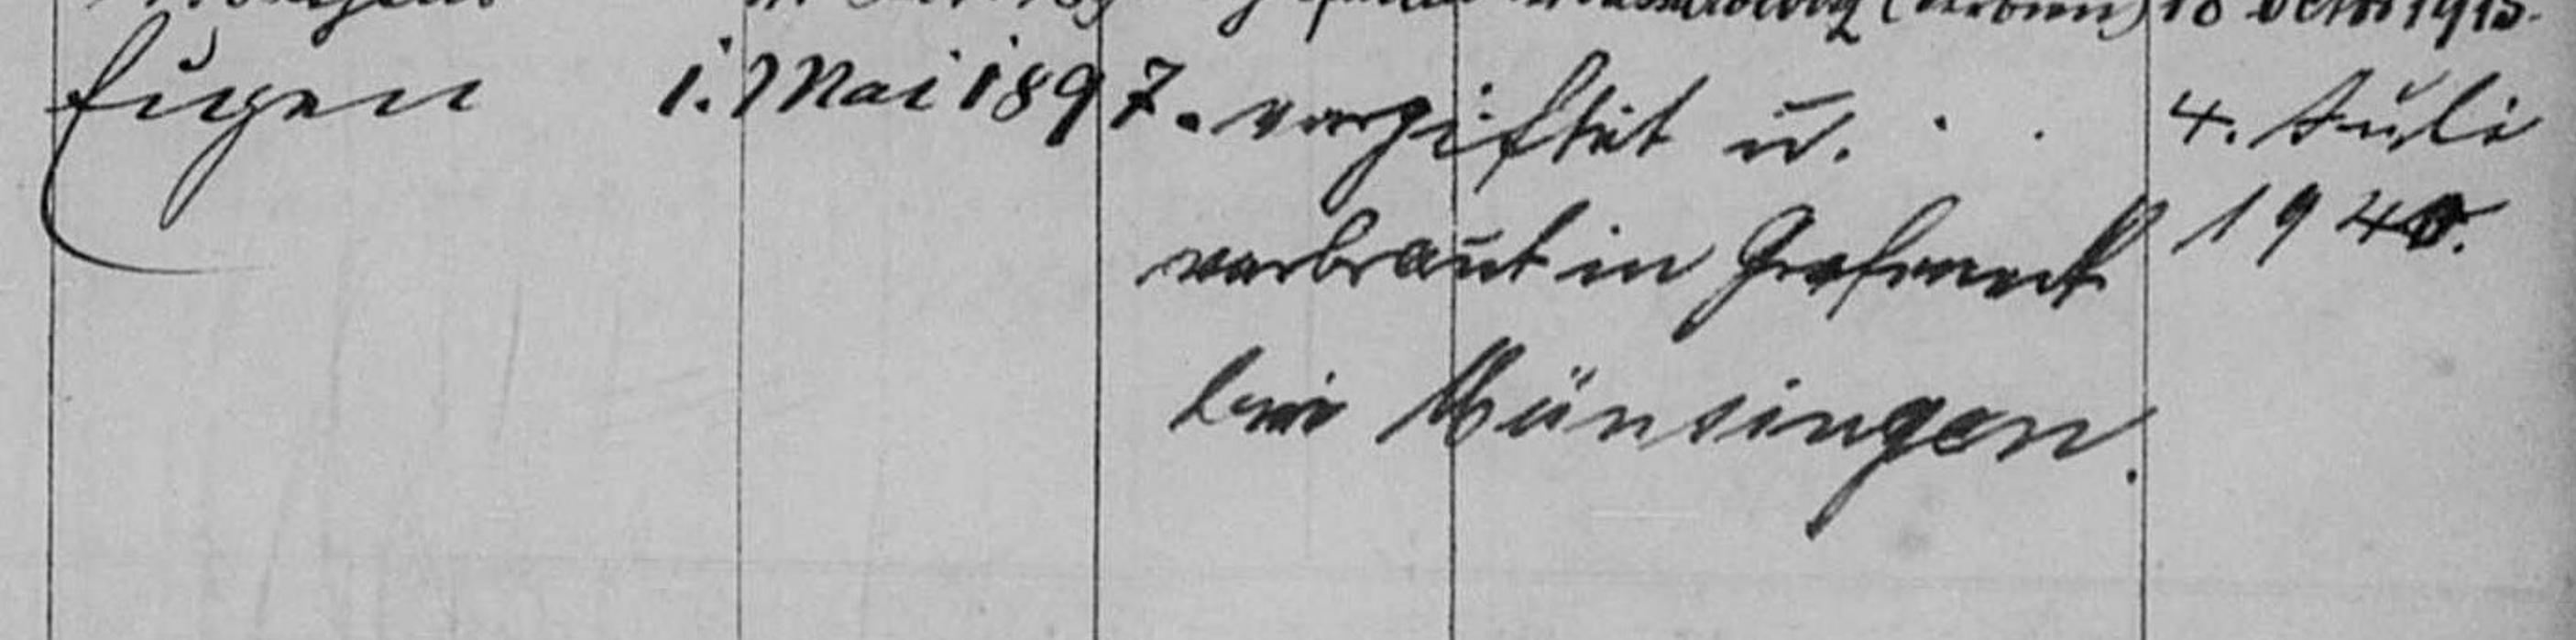 18 Octbr 1915.
Eugen 1. Mai 1897. vergiftet u. 4. Juli
verbraut in Grafeneck 1940.
bei Münsingen.